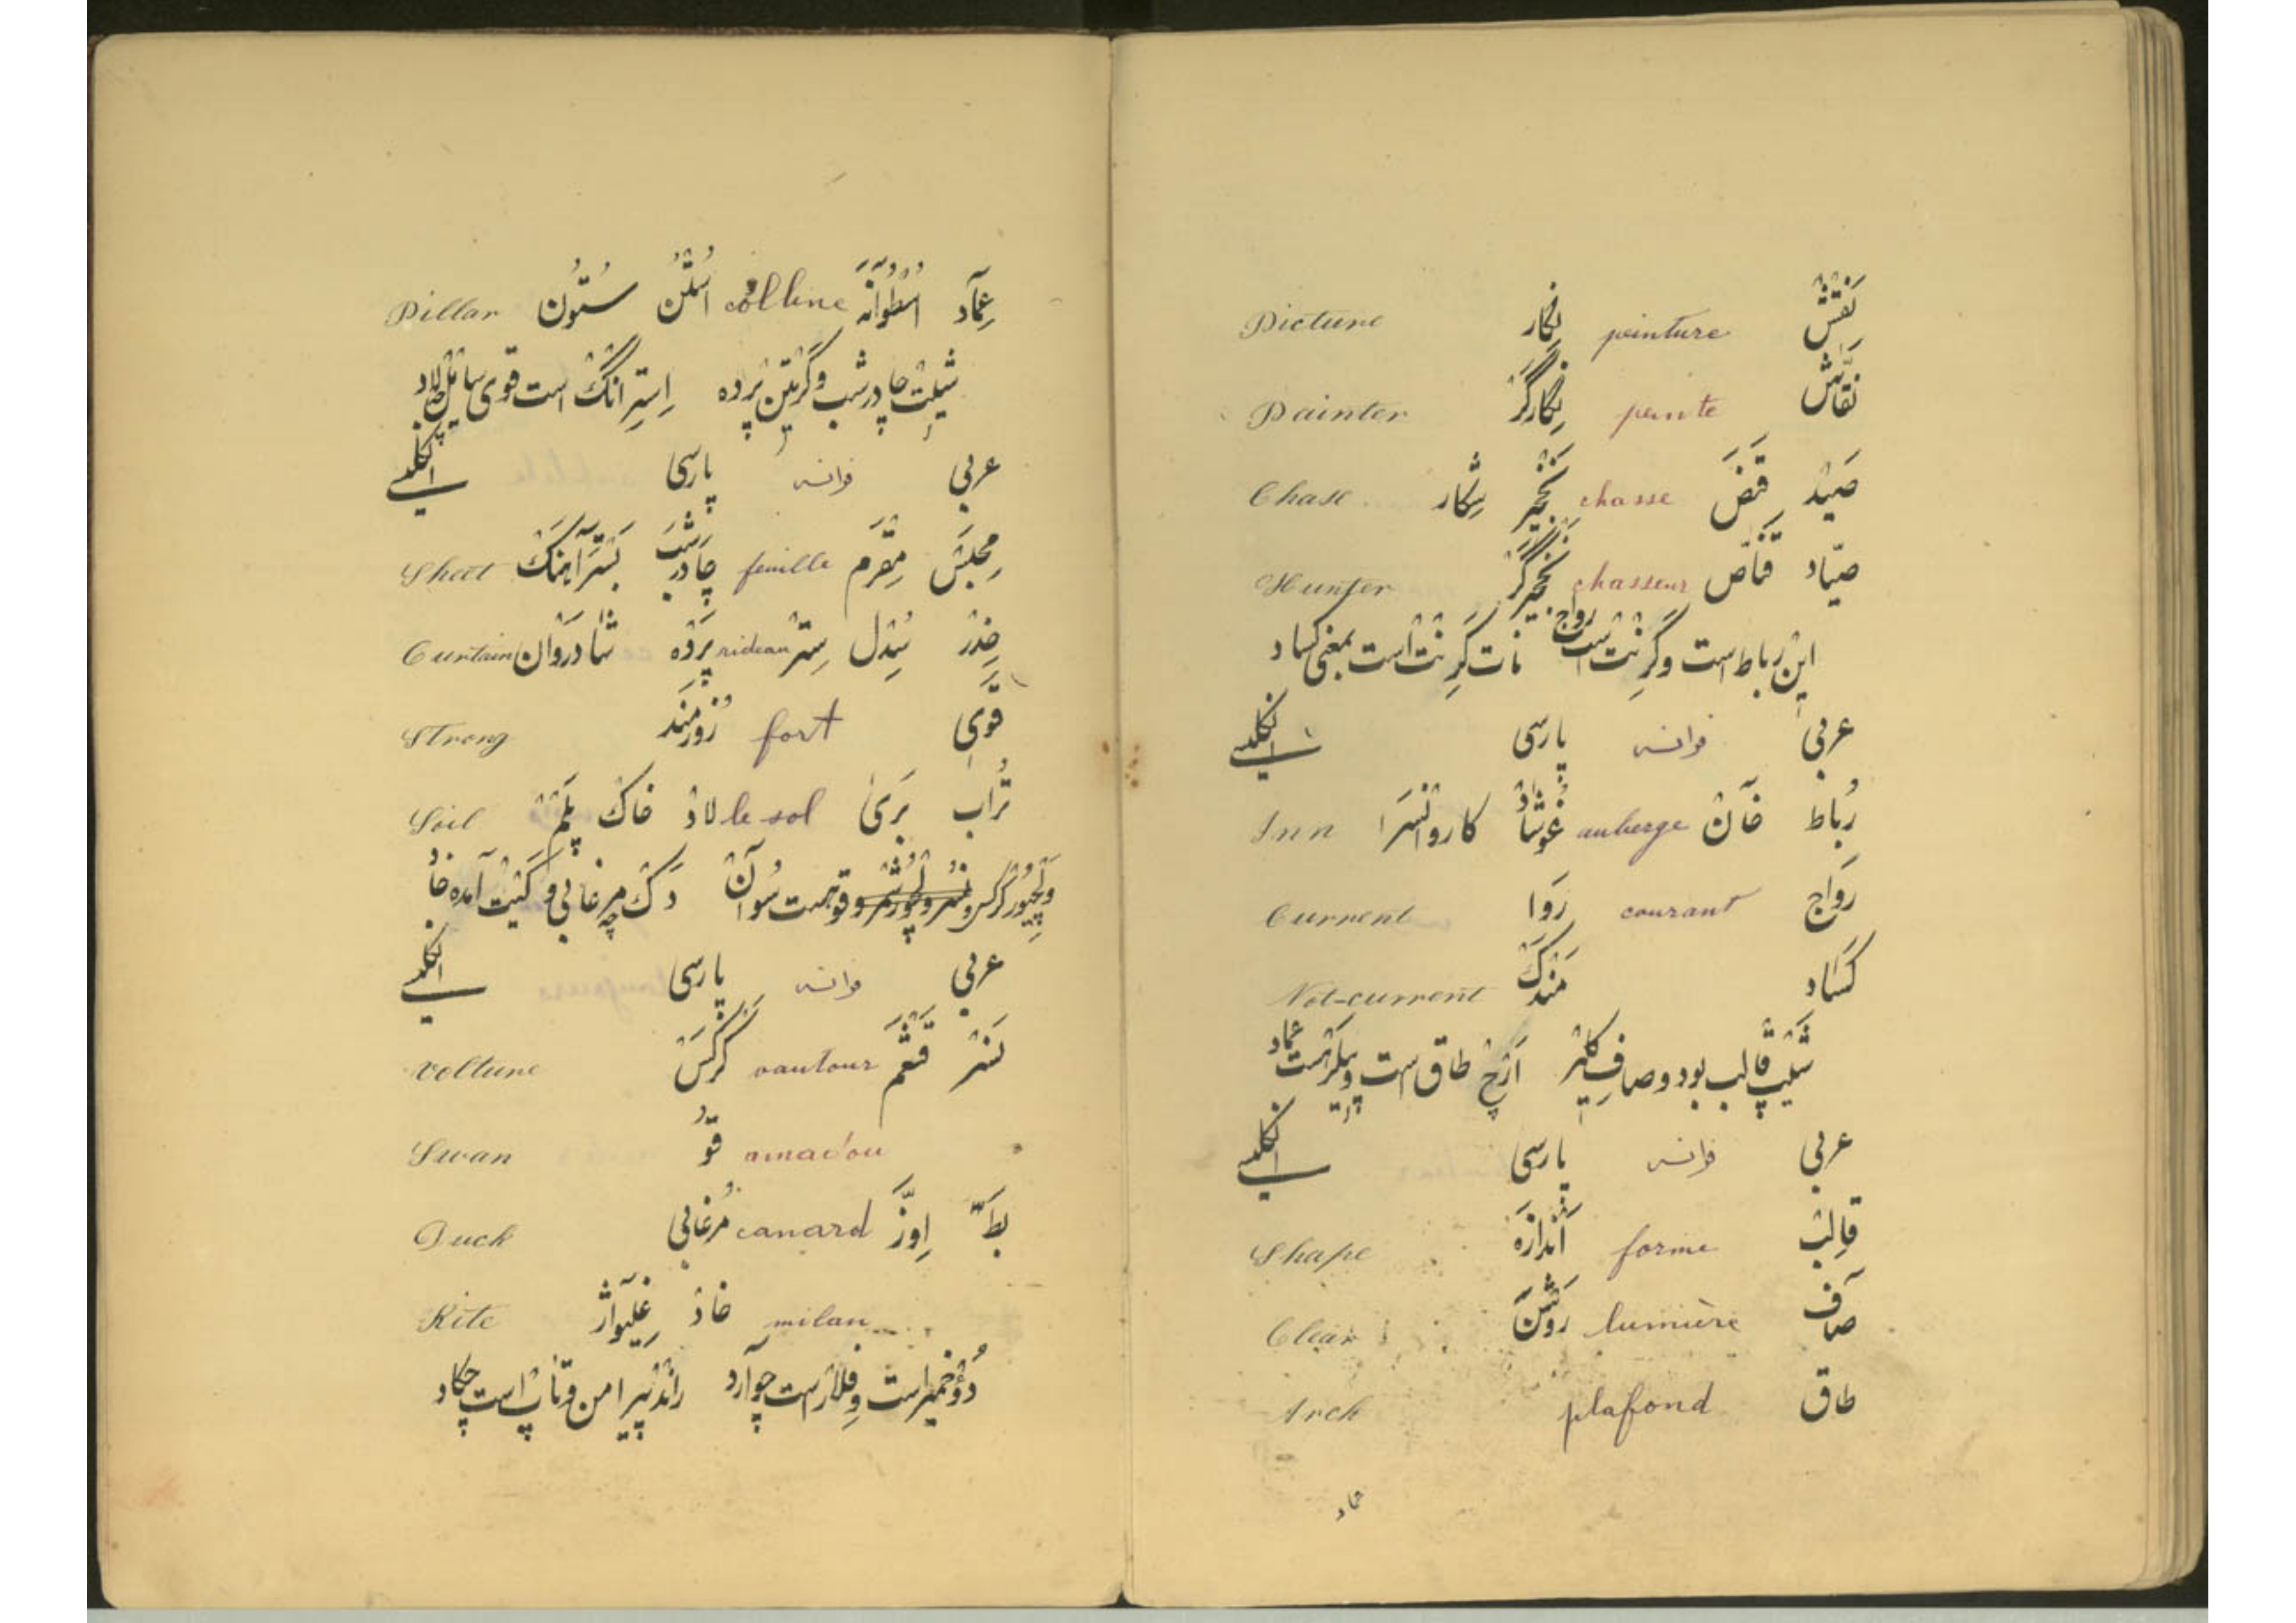 نَقْش peinture نِگار Picture
نَقّاش peinte نِگارگَر Painter
صَیْد قَنَص chasse نَخْچیر شِکار Chase
صیّاد قَنّاص chasseur نَخْچیرگَر Hunter
این رباط است و گَرِنْت است رواج نات گَرِنْت است بمعنی کساد
عربی فرانسه پارسی انگلیسی
رُباط خان auberge غُوشاد کاروانسَرا Inn
رَواج courant رَوَا Current
کَساد مَندَک Not-current
شَیْپ قالب بود و صاف کلیر اَرْچ طاق است و پیلَر است عماد
عربی فرانسه پارسی انگلیسی
قالِب forme اَندازَه Shape
صاف lumière رَوشَن Clear
طاق plafond Arch
عماد
عِمآد اُسْطُوانَه colline اُسْتُن سُتُون Pillar
شیِت چادرشب و کَرِتِن پَرده اِسترانگ است قوی سایل لاد
عربی فرانسه پارسی انگلیسی
مِحبَس مِقرَم feuille چادرشَب بَسْتَرآهَنگ Sheet
خِدْر سُِدل سِتْر rideau پَردَه شادرَوان Curtain
قَوی fort زورمَند Strong
تُراب بَریٰ le sol لاد خاک Soil
وَلْچیُور کرکس و قو هست سُوآن دَک مرغابی و کَیْت آمده خاد
عربی فرانسه پارسی انگلیسی
نَسْر قَشْعَم vautour کَرکَس Volture
amadou قُو Swan
بَطّ اِوَزّ canard مُرغابی Duck
milan خاد غَلیواژ Kite
دُوْ خمیر است و فِلار است چو آرد رانْد پیرامن و تاپ است چکاد